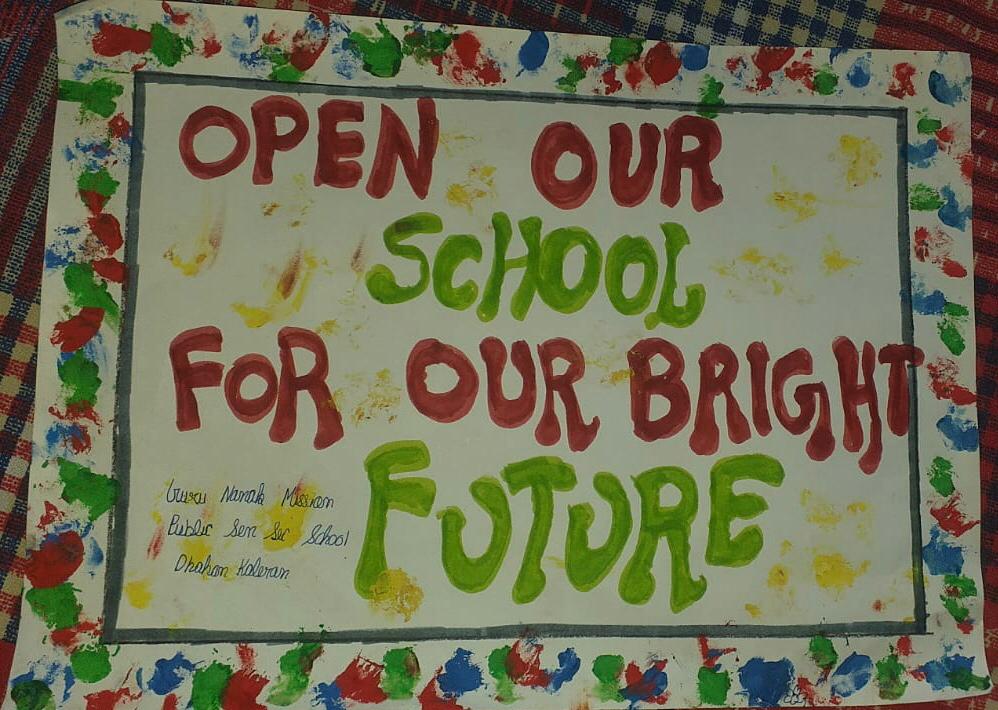 OPEN OUR
SCHOOL
FOR OUR BRIGHT
FUTURE
Guru Nanak Mission
Public Sen Sec School
Dhahan Kaleran